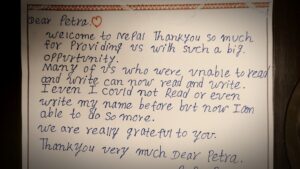 Dear Petra♡
Welcome to Nepal Thankyou so much
for Providing us with such a big
oppurtunity.
Many of us who were unable to read
and write can now read and write.
I even I could not Read or even
write my name before but now I am
able to do so more.
We are really grateful to you.
Thankyou very much Dear Petra.